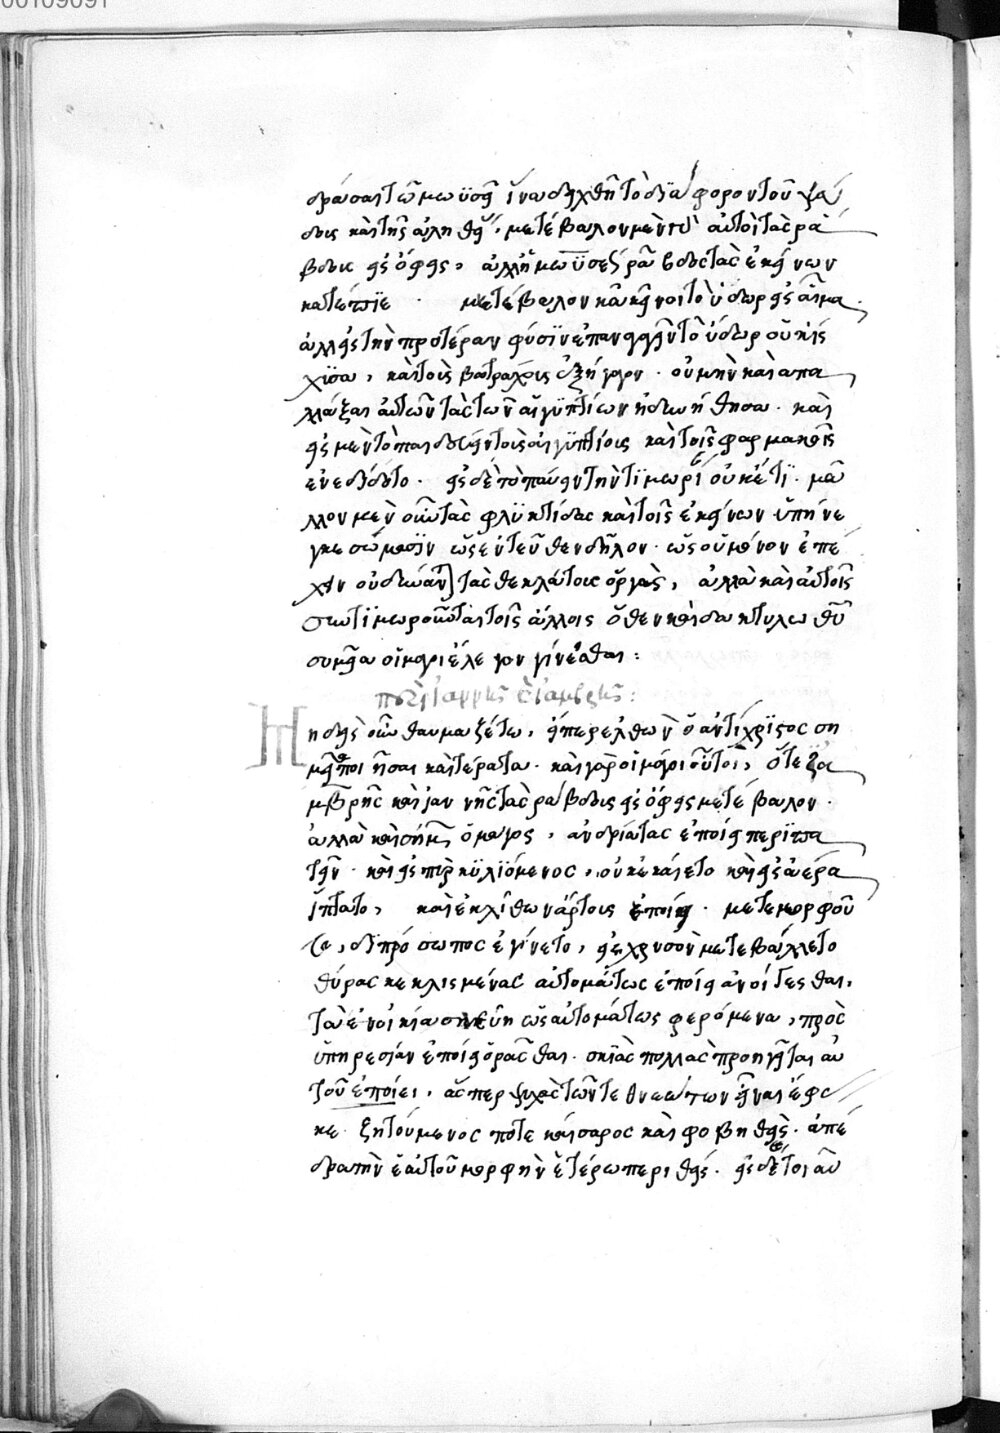 δράσαι τῶ μωϋσῆ ἵνα δειχθῆ τὸ διάφορον τοῦ ψεύ
δους καὶ τῆς ἀληθείας. μετέβαλον μὲν αὐτοὶ τὰς ρά
βδους εἰς ὄφεις, ἀλλ' ἡ μωϋσέως ράβδος τὰς ἐκείνων
κατέπιε. μετέβαλον κἀκεῖνοι τὸ ὕδωρ εἰς αἷμα.
ἀλλ' εἰς τὴν προτέραν φύσιν ἐπαναγαγεῖν τὸ ὕδωρ οὐκ ἴσ
χυσαν, καὶ τοὺς βατράχους ἐξήγαγον. οὐ μὴν καὶ ἀπα
λλάξαι αὐτῶν τὰς τῶν αἰγυπτίων ἠδυνήθησαν. καὶ
εἰς μὲν τὸ παιδεύειν τοὺς αἰγυπτίους καὶ τοῖς φαρμακοῖς
ἐνεδίδοτο. εἰς δὲ τὸ παύειν τὴν τιμωρίαν οὐκέτι. μᾶ
λλον μὲν οὖν τὰς φλυκτίδας καὶ τοῖς ἐκείνων ὑπήνε
γκε σώμασιν ὡς ἐντεῦθεν δῆλον. ὡς οὐ μόνον ἐπέ
χειν οὐ δύνανται τὰς θεηλάτους ὀργάς, ἀλλὰ καὶ αὐτοὶ
συντιμωροῦνται τοῖς ἄλλοις ὅθεν καὶ δακτύλω θεοῦ
οἱ μάγοι ἔλεγον γίνεσθαι:
περὶ ἰαννῆς καὶ ἰαμβρῆς:
Μηδεὶς οὖν θαυμαζέτω, εἴπερ ἐλθὼν ὁ ἀντίχριστος ση
μεῖα ποιήσαι καὶ τέρατα. καὶ γὰρ οἱ μάγοι οὗτοι, ὅτε ἰα
μβρῆς καὶ ἰαννῆς τὰς ράβδους εἰς ὄφεις μετέβαλον.
ἀλλὰ καὶ σίμων ὁ μάγος, ἀνδριάντας ἐποίει περιπα
τεῖν. καὶ εἰς πῦρ κυλιόμενος, οὐκ ἐκαίετο καὶ εἰς ἀέρα
ἵπτατο, καὶ ἐκ λίθων ἄρτους ἐποίει. μετεμορφοῦ
το, διπρόσωπος ἐγίνετο, εἰς χρυσὸν μετεβάλλετο
θύρας κεκλισμένας αὐτομάτως ἐποίει ἀνοίγεσθαι.
τὰ ἐν οἰκία σκεύη ὡς αὐτομάτως φερόμενα, πρὸς
ὑπηρεσίαν ἐποίει ὁρᾶσθαι. σκιὰς πολλὰς προηγεῖσθαι αὐ
τοῦ ἐποίει, ἅσπερ ψυχὰς τῶν τεθνεώτων εἶναι ἔφασ
κε. ζητούμενος ποτὲ καίσαρος καὶ φοβηθεὶς. ἀπέ
δρα τὴν ἑαυτοῦ μορφὴν ἑτέρω περιθείς. εἰς δέ τοι αὐ